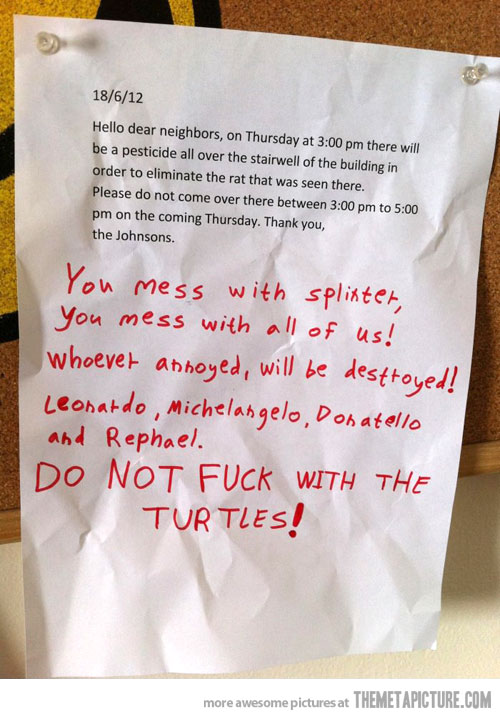 18/6/12
Hello dear neighbors, on Thursday at 3:00 pm there will
be a pesticide all over the stairwell of the building in
order to eliminate the rat that was seen there.
Please do not come over there between 3:00 pm to 5:00
pm on the coming Thursday. Thank you,
the Johnsons.
You mess with splinter,
you mess with all of us!
whoever annoyed, will be destroyed!
Leonardo, Michelangelo, Donatello
and Rephael.
DO NOT FUCK WITH THE
TURTLES!
more awesome pictures at THEMETAPICTURE.COM